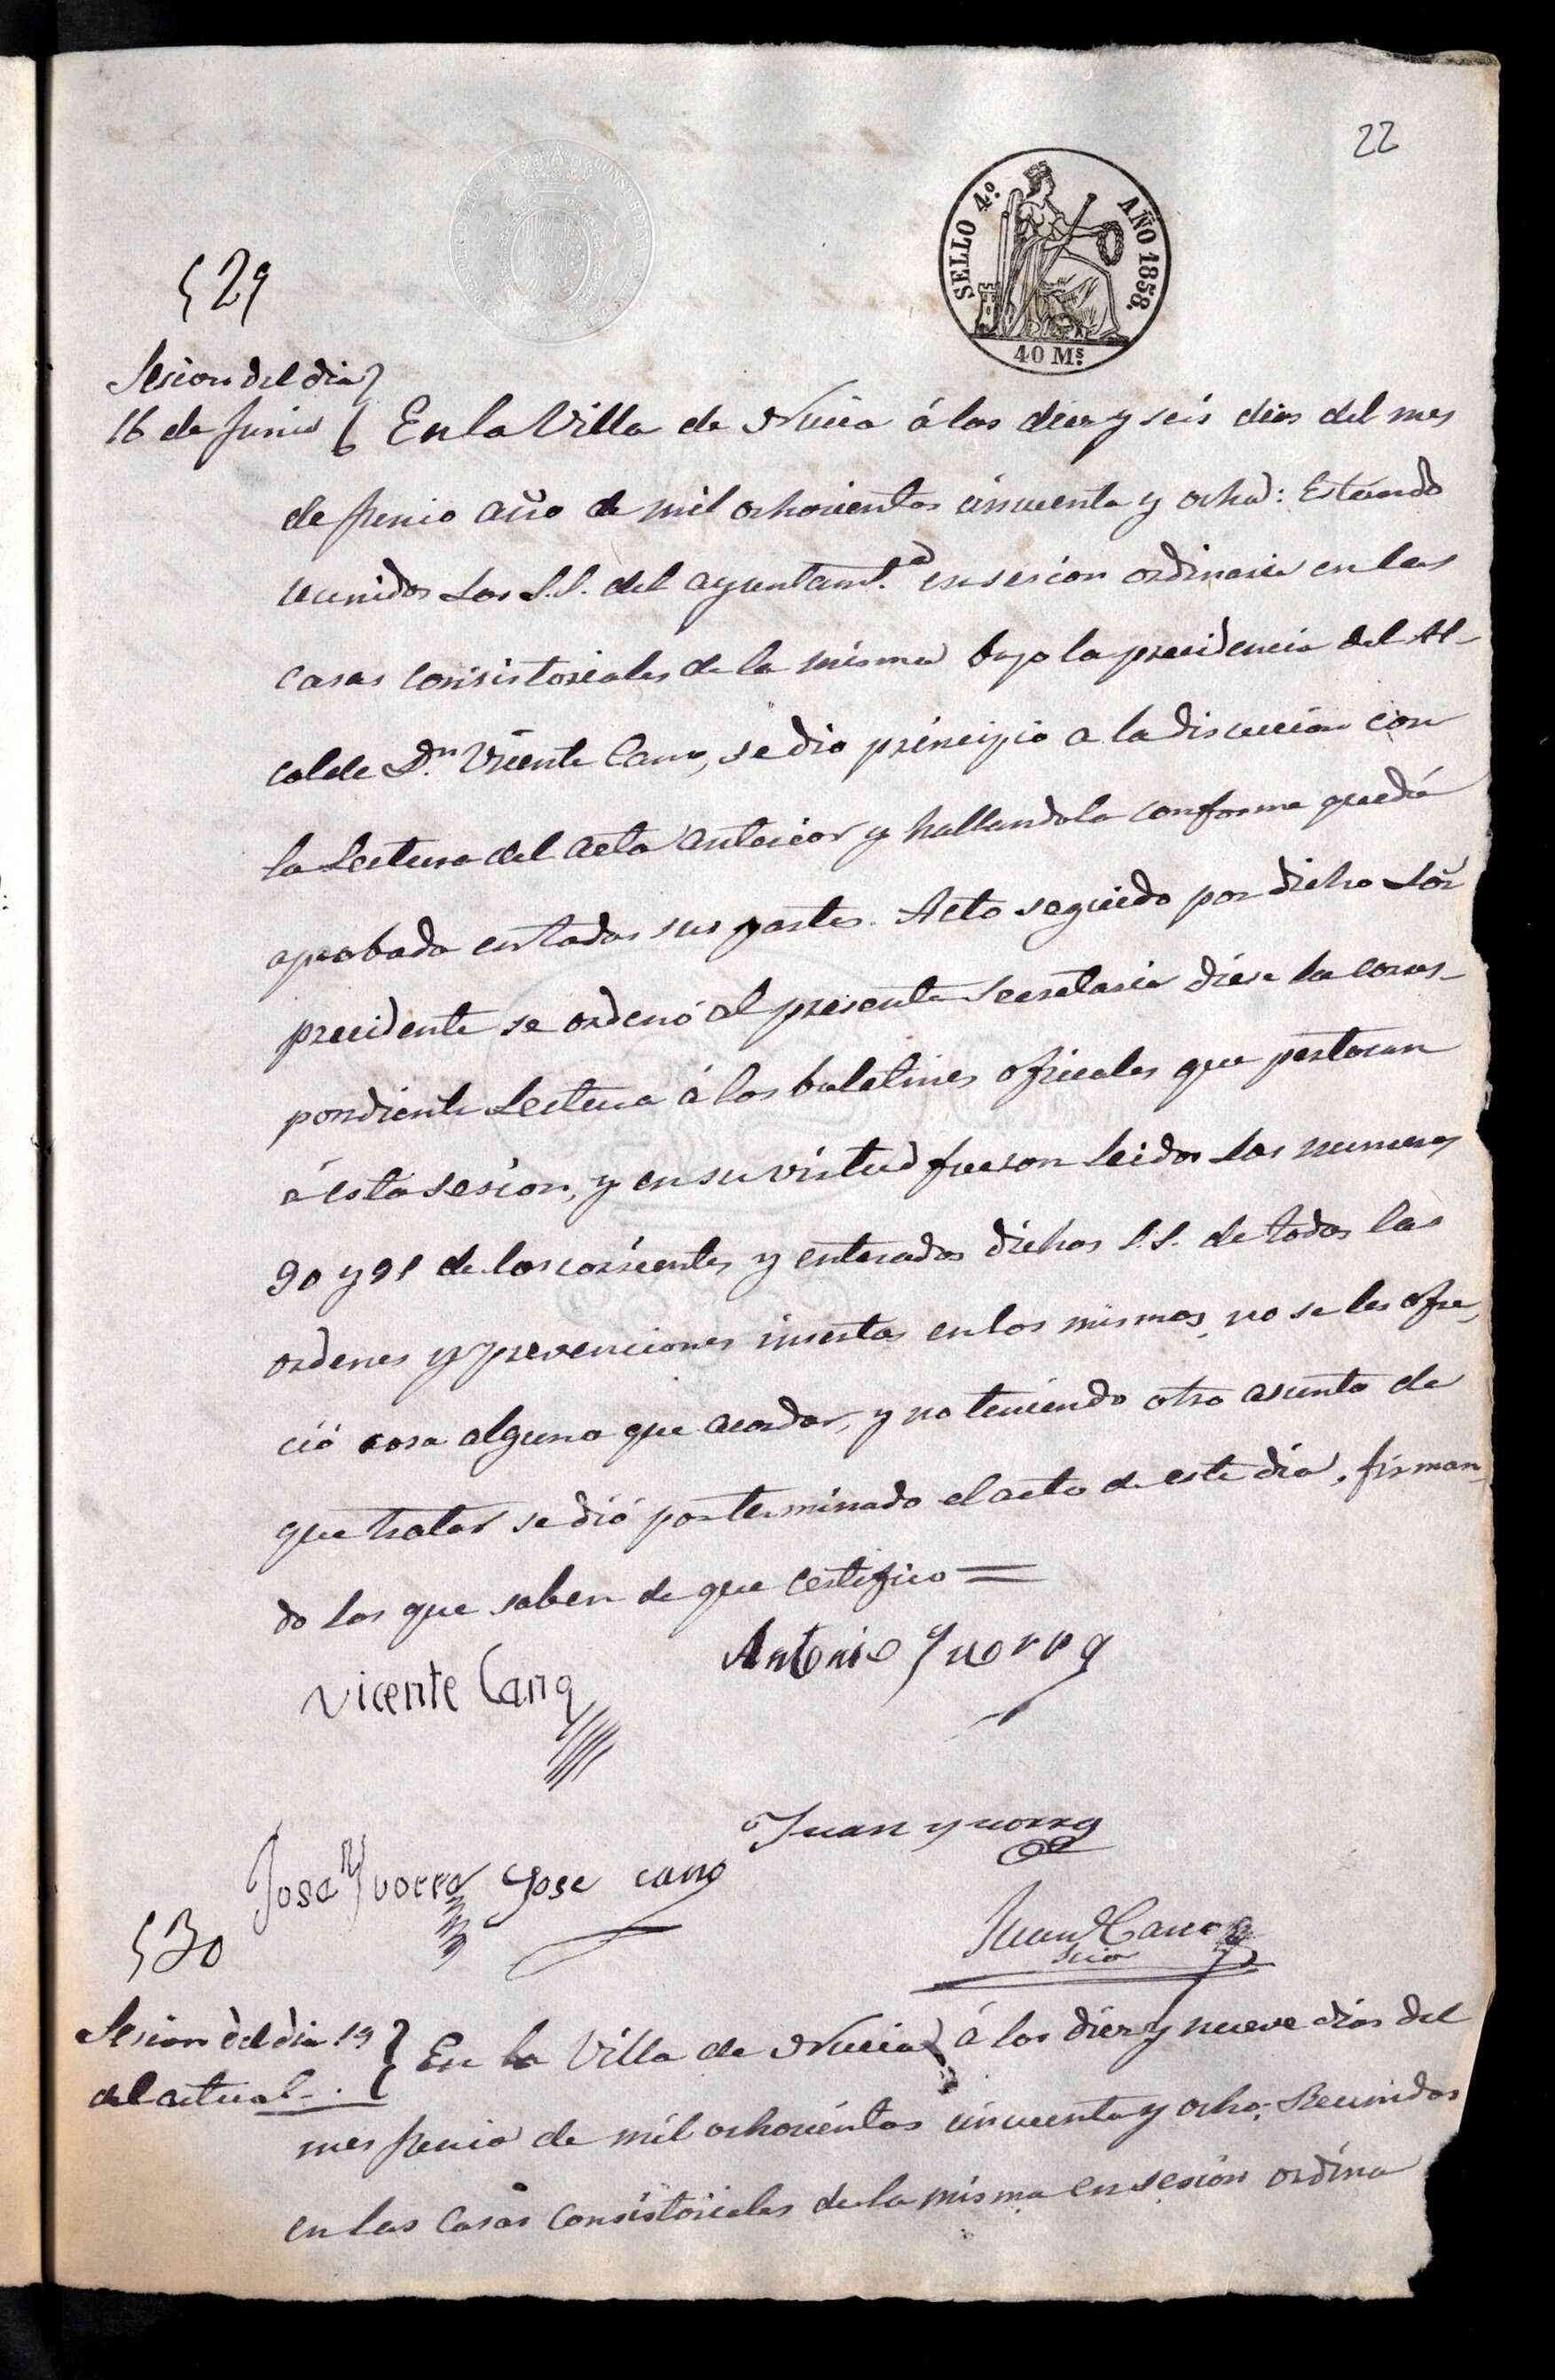 22
SELLO 4º. AÑO 1858.
40 Ms.
§ 29
Sesion del dia
16 de Junio } En la Villa de Nucia á los diez y seis dias del mes
de Junio año de mil ochocientos cincuenta y ocho: Estando
reunidos los S.S. del ayuntamto. en sesion ordinaria en las
casas consistoriales de la misma bajo la precidencia del Al-
calde Dn. Vicente Cano, se dio principio a la discucion con
la Lectura del acta anterior y hallandola conforme quedó
aprobada en todas sus partes. Acto seguido por dicho Sor.
precidente se ordenó al presente Secretario diese la corres-
pondiente Lectura á los boletines oficiales que pertocan
á esta sesion, y en su virtud fueron leidos los numeros
90 y 91 de los corrientes y enterados dichos S.S. de todas las
ordenes y prevenciones insertas en los mismos, no se les ofre-
ció cosa alguna que acordar, y no teniendo otro asunto de
que tratar se dió por terminado el acto de este dia, firman-
do los que saben de que certifico =
Vicente Cano
Antonio Yvorra
Juan yvorra
Jose Yvorra Jose cano
Juan Cano
Scio
§ 30
Sesion del dia 19
del actual-. } En la Villa de Nucia á los diez y nueve dias del
mes Junio de mil ochocientos cincuenta y ocho; Reunidos
en las casas consistoriales de la misma en sesion ordina